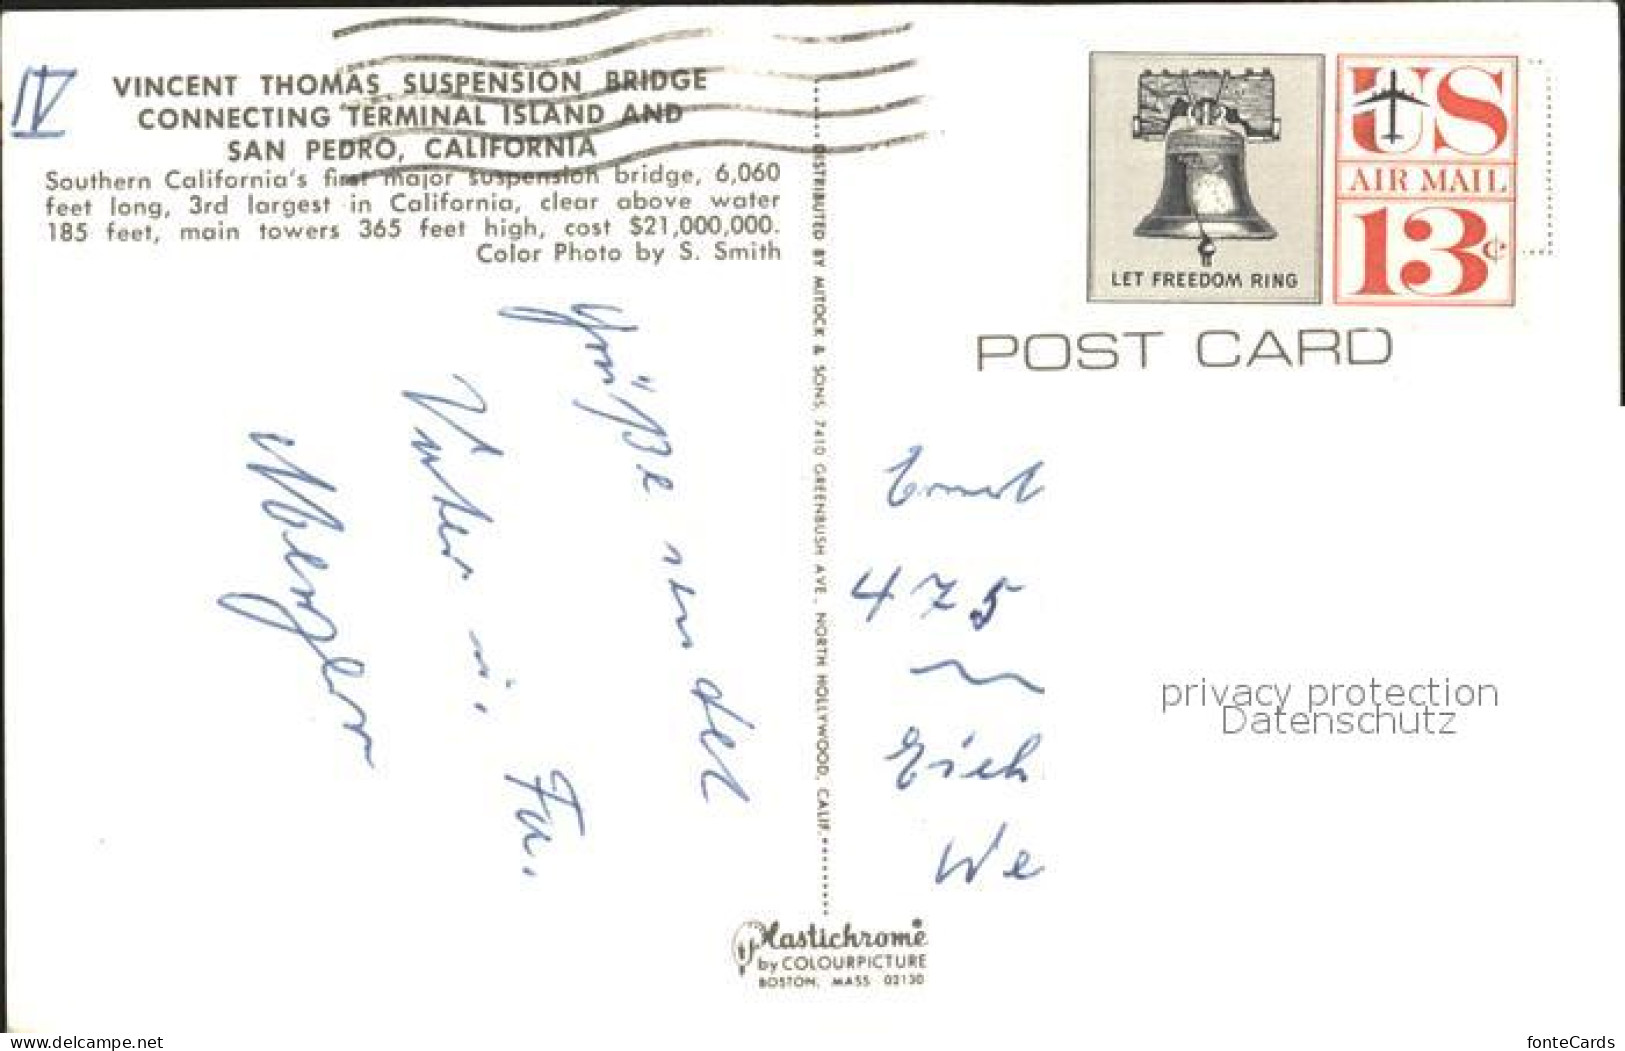 IV
VINCENT THOMAS SUSPENSION BRIDGE
CONNECTING TERMINAL ISLAND AND
SAN PEDRO, CALIFORNIA
Southern California's first major suspension bridge, 6,060
feet long, 3rd largest in California, clear above water
185 feet, main towers 365 feet high, cost $21,000,000.
Color Photo by S. Smith
Grüße
Vater u. Fa.
DISTRIBUTED BY MITOCK & SONS, 7410 GREENBUSH AVE., NORTH HOLLYWOOD, CALIF.
LET FREEDOM RING
US
AIR MAIL
13¢
POST CARD
475
We
privacy protection
Datenschutz
Plastichrome
by COLOURPICTURE
BOSTON, MASS 02130
www.delcampe.net
fonteCards